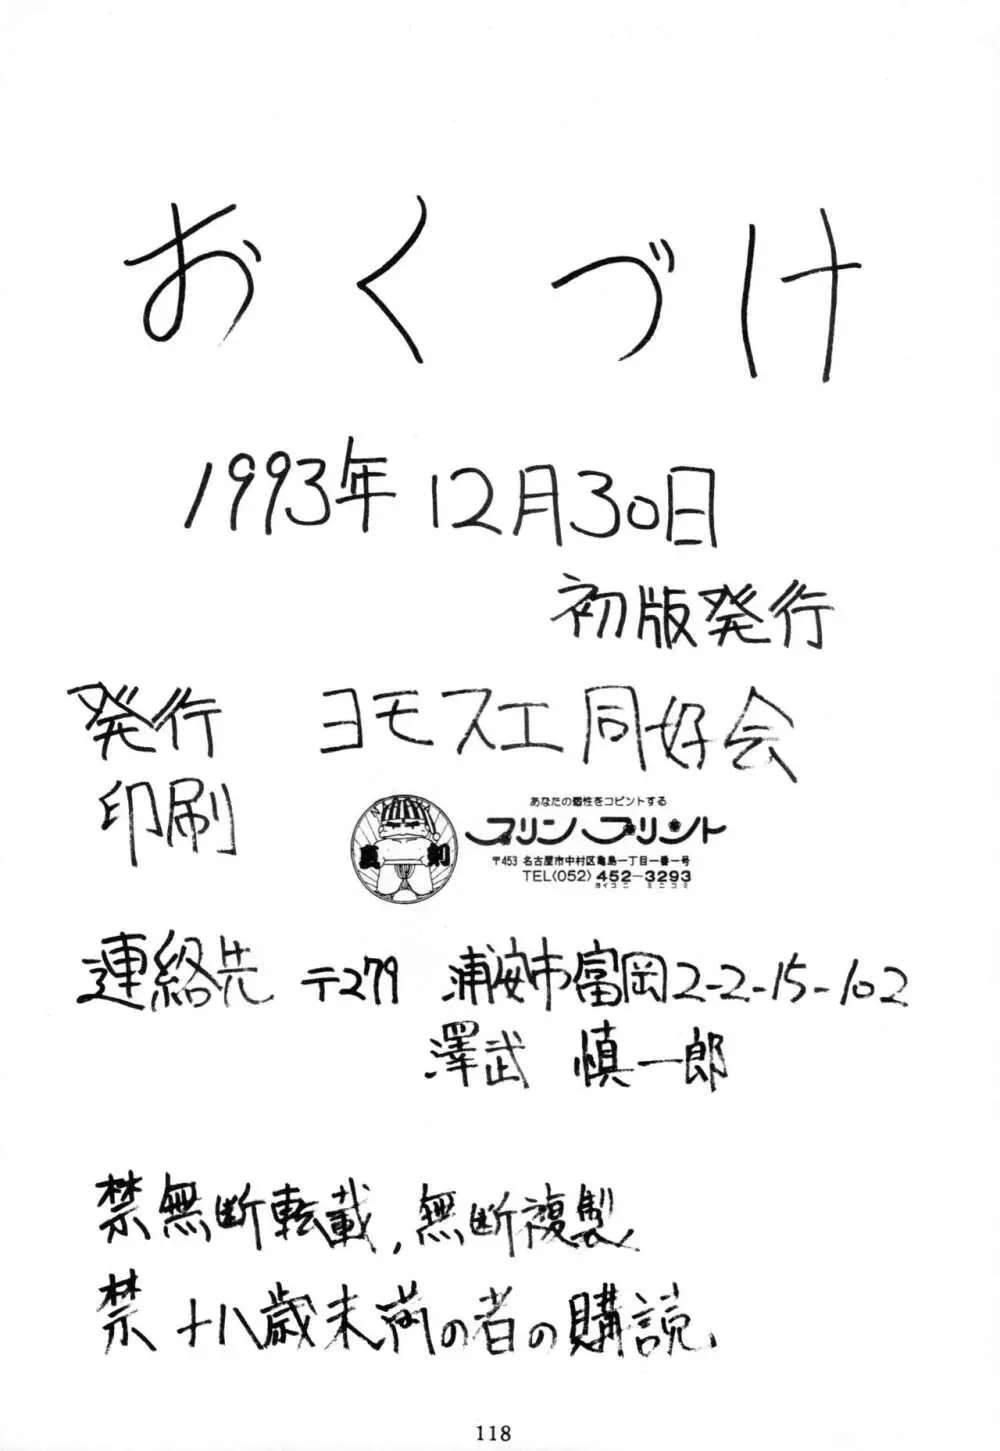 おくづけ
1993年12月30日
初版発行
発行 ヨモスエ同好会
印刷
裏 剣
あなたの個性をコピントする
プリンプリント
〒453 名古屋市中村区亀島一丁目一番一号
TEL(052)452-3293
ヨイコニ ミニコミ
連絡先 〒279 浦安市富岡2-2-15-102
澤武 慎一郎
禁無断転載,無断複製
禁十八歳未満の者の購読、
118